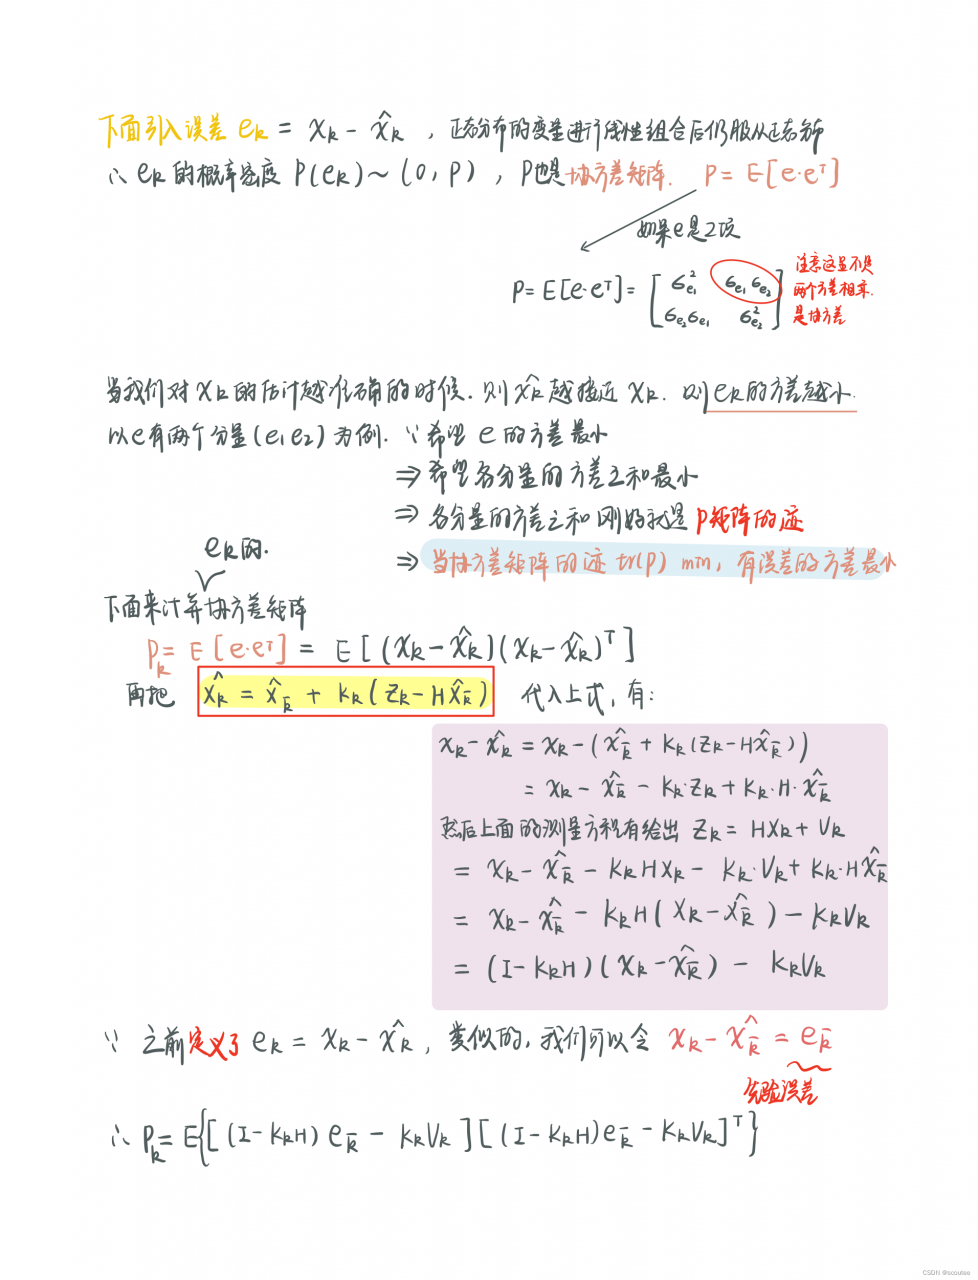 下面引入误差 eₖ = xₖ - x̂ₖ , 正态分布的变量进行线性组合后仍服从正态分布
∴ eₖ 的概率密度 P(eₖ) ~ (0, P) , P也是协方差矩阵. P = E[e·eᵀ]
如果e是2项
P = E[e·eᵀ] = [ σ²ₑ₁ σₑ₁σₑ₂
σₑ₂σₑ₁ σ²ₑ₂ ]
注意这里不是
两个方差相乘.
是协方差
当我们对 xₖ 的估计越准确的时候. 则 x̂ₖ 越接近 xₖ. 则 eₖ的方差越小.
以e有两个分量(e₁ e₂) 为例. ∵ 希望 e 的方差最小
⇒ 希望各分量的方差之和最小
⇒ 各分量的方差之和刚好就是 P矩阵的迹
⇒ 当协方差矩阵的迹 tr(P) min, 有误差的方差最小
eₖ的.
下面来计算协方差矩阵
Pₖ = E[e·eᵀ] = E[(xₖ - x̂ₖ)(xₖ - x̂ₖ)ᵀ]
再把 x̂ₖ = x̂ₖ̄ + Kₖ(Zₖ - Hx̂ₖ̄) 代入上式, 有:
xₖ - x̂ₖ = xₖ - (x̂ₖ̄ + Kₖ(Zₖ - Hx̂ₖ̄))
= xₖ - x̂ₖ̄ - Kₖ·Zₖ + Kₖ·H·x̂ₖ̄
然后上面的测量方程有给出 Zₖ = Hxₖ + Vₖ
= xₖ - x̂ₖ̄ - KₖHxₖ - Kₖ·Vₖ + Kₖ·Hx̂ₖ̄
= xₖ - x̂ₖ̄ - KₖH(xₖ - x̂ₖ̄) - KₖVₖ
= (I - KₖH)(xₖ - x̂ₖ̄) - KₖVₖ
∵ 之前定义了 eₖ = xₖ - x̂ₖ , 类似的, 我们可以令 xₖ - x̂ₖ̄ = eₖ̄
先验误差
∴ Pₖ = E{[(I - KₖH) eₖ̄ - KₖVₖ][(I - KₖH)eₖ̄ - KₖVₖ]ᵀ}